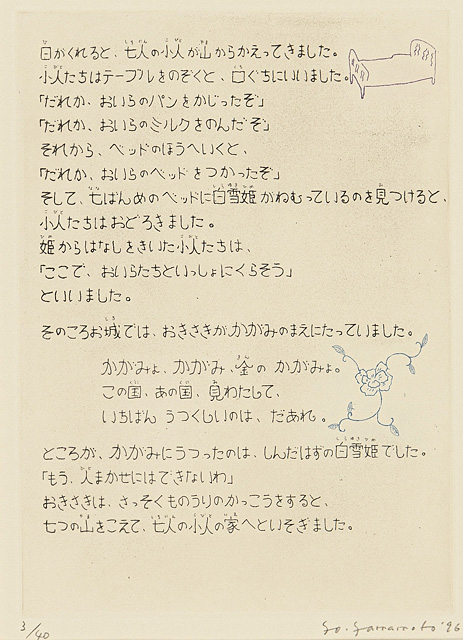 日がくれると、七人の小人が山からかえってきました。
小人たちはテーブルをのぞくと、口ぐちにいいました。
「だれか、おいらのパンをかじったぞ」
「だれか、おいらのミルクをのんだぞ」
それから、ベッドのほうへいくと、
「だれか、おいらのベッドをつかったぞ」
そして、七ばんめのベッドに白雪姫がねむっているのを見つけると、
小人たちはおどろきました。
姫からはなしをきいた小人たちは、
「ここで、おいらたちといっしょにくらそう」
といいました。
そのころお城では、おきさきが、かがみのまえにたっていました。
かがみよ、かがみ、金の かがみよ。
この国、あの国、見わたして、
いちばん うつくしいのは、だあれ。
ところが、かがみにうつったのは、しんだはずの白雪姫でした。
「もう、人まかせにはできないわ」
おきさきは、さっそくものうりのかっこうをすると、
七つの山をこえて、七人の小人の家へといそぎました。
3/40
Yo. Yamamoto '96